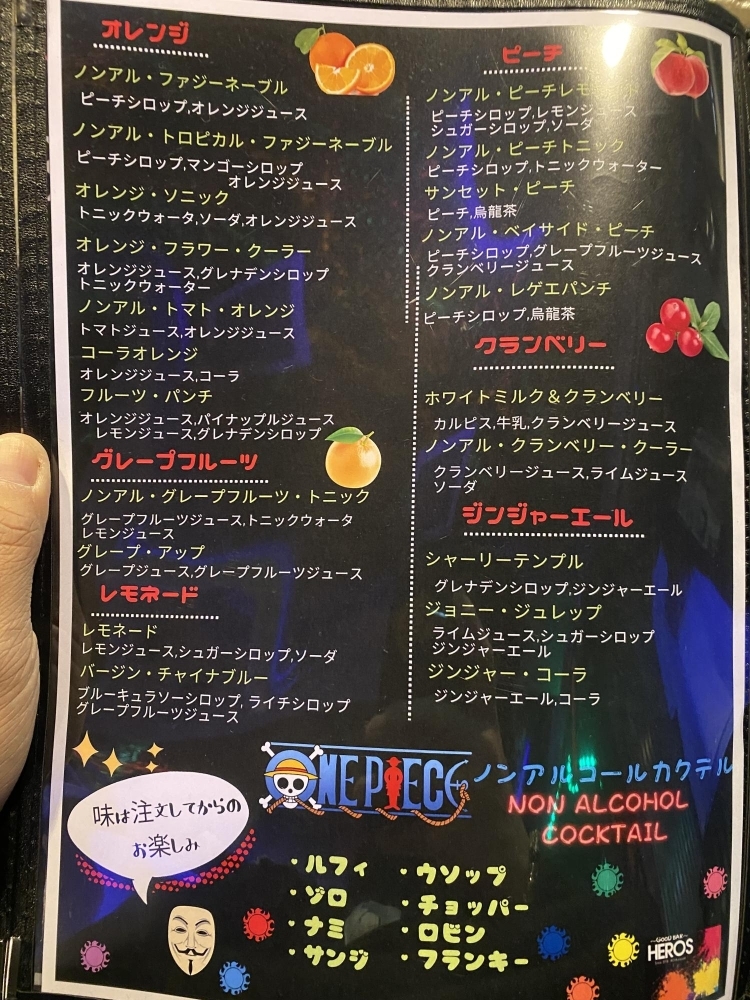 オレンジ
ノンアル・ファジーネーブル
ピーチシロップ,オレンジジュース
ノンアル・トロピカル・ファジーネーブル
ピーチシロップ,マンゴーシロップ
オレンジジュース
オレンジ・ソニック
トニックウォータ,ソーダ,オレンジジュース
オレンジ・フラワー・クーラー
オレンジジュース,グレナデンシロップ
トニックウォーター
ノンアル・トマト・オレンジ
トマトジュース,オレンジジュース
コーラオレンジ
オレンジジュース,コーラ
フルーツ・パンチ
オレンジジュース,パイナップルジュース
レモンジュース,グレナデンシロップ
グレープフルーツ
ノンアル・グレープフルーツ・トニック
グレープフルーツジュース,トニックウォータ
レモンジュース
グレープ・アップ
グレープジュース,グレープフルーツジュース
レモネード
レモネード
レモンジュース,シュガーシロップ,ソーダ
バージン・チャイナブルー
ブルーキュラソーシロップ, ライチシロップ
グレープフルーツジュース
ピーチ
ノンアル・ピーチレモ
ピーチシロップ,レモンジュース
シュガーシロップ,ソーダ
ノンアル・ピーチトニック
ピーチシロップ,トニックウォーター
サンセット・ピーチ
ピーチ,烏龍茶
ノンアル・ベイサイド・ピーチ
ピーチシロップ,グレープフルーツジュース
クランベリージュース
ノンアル・レゲエパンチ
ピーチシロップ,烏龍茶
クランベリー
ホワイトミルク＆クランベリー
カルピス,牛乳,クランベリージュース
ノンアル・クランベリー・クーラー
クランベリージュース,ライムジュース
ソーダ
ジンジャーエール
シャーリーテンプル
グレナデンシロップ,ジンジャーエール
ジョニー・ジュレップ
ライムジュース,シュガーシロップ
ジンジャーエール
ジンジャー・コーラ
ジンジャーエール,コーラ
味は注文してからの
お楽しみ
ONE PIECE ノンアルコールカクテル
NON ALCOHOL
COCKTAIL
・ルフィ ・ウソップ
・ゾロ ・チョッパー
・ナミ ・ロビン
・サンジ ・フランキー
GOOD BAR
HEROS